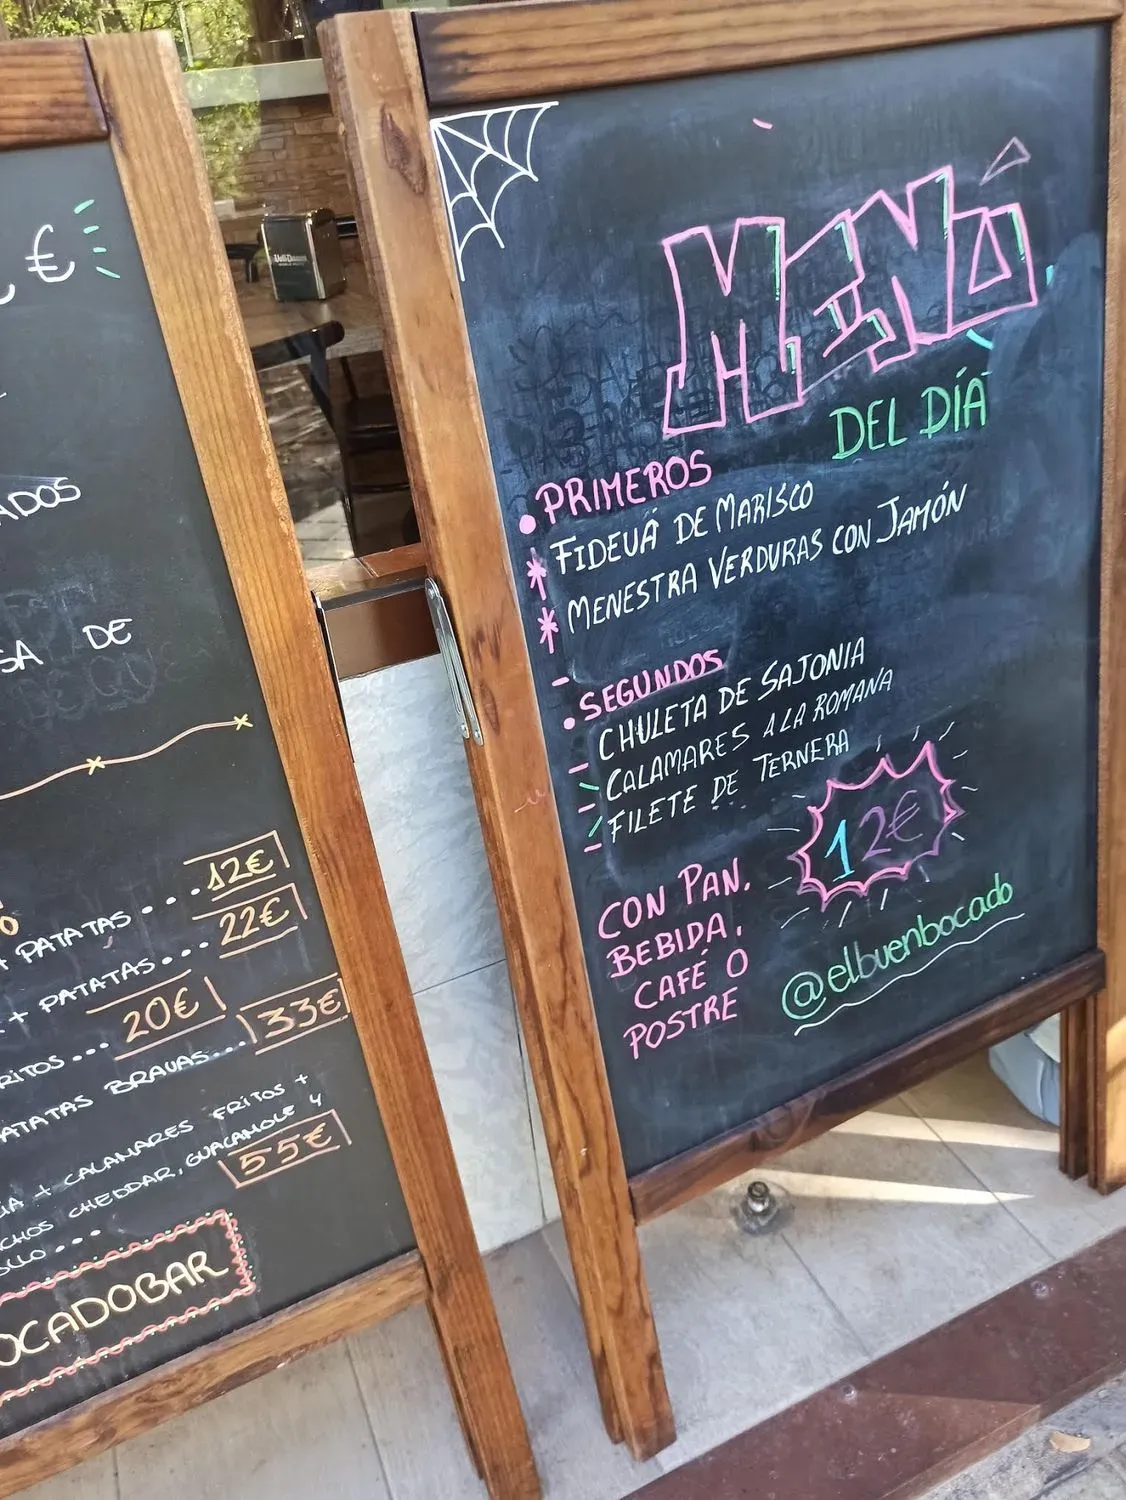 €
ADOS
SA DE
+ PATATAS... 12€
+ PATATAS... 22€
RITOS... 20€
PATATAS BRAVAS... 33€
+ CALAMARES FRITOS +
CHOS CHEDDAR, GUACAMOLE Y
OLLO... 55€
OCADOBAR
MENÚ
DEL DÍA
• PRIMEROS
* FIDEUÁ DE MARISCO
* MENESTRA VERDURAS CON JAMÓN
• SEGUNDOS
- CHULETA DE SAJONIA
- CALAMARES A LA ROMANA
- FILETE DE TERNERA
12€
CON PAN,
BEBIDA,
CAFÉ O
POSTRE
@elbuenbocado